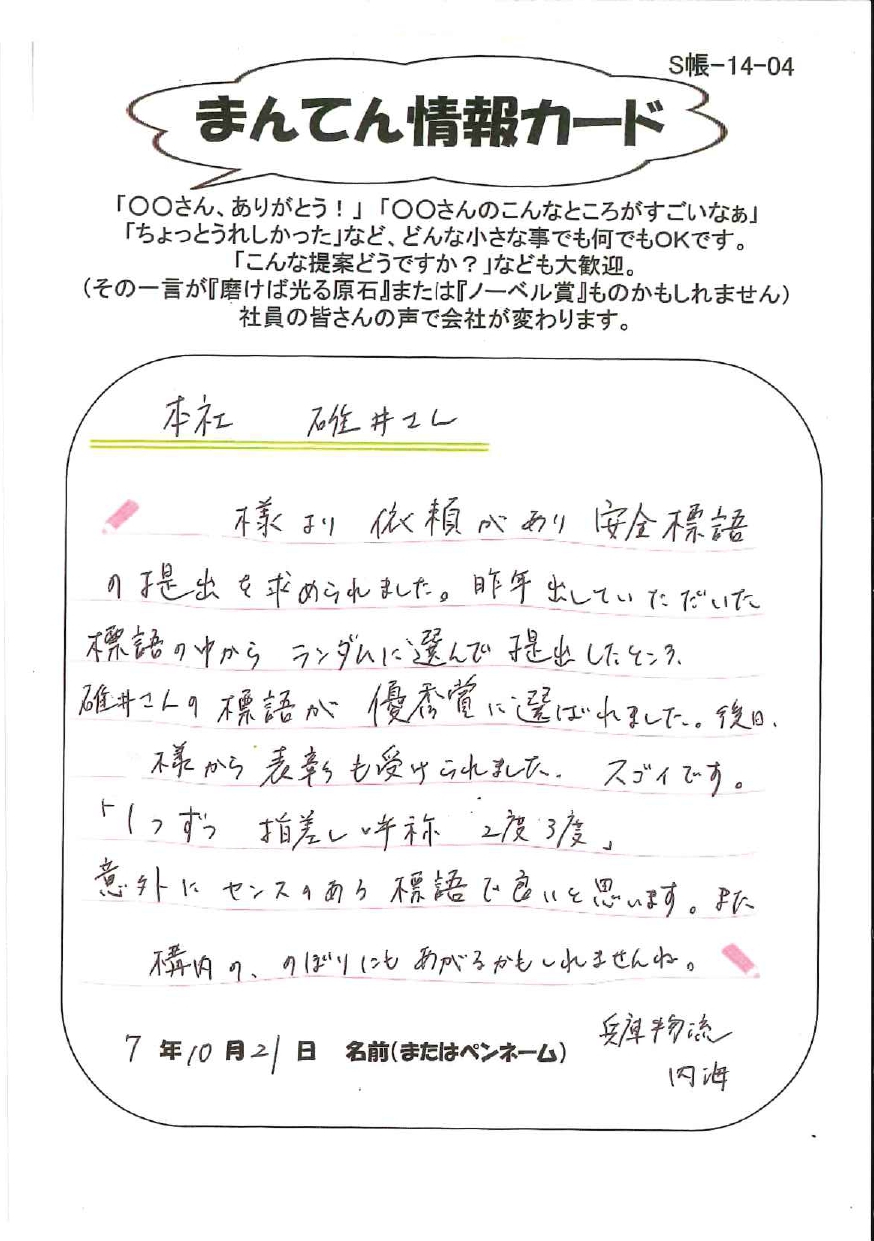 S帳-14-04
まんてん情報カード
「〇〇さん、ありがとう！」「〇〇さんのこんなところがすごいなぁ」
「ちょっとうれしかった」など、どんな小さな事でも何でもOKです。
「こんな提案どうですか？」なども大歓迎。
(その一言が『磨けば光る原石』または『ノーベル賞』ものかもしれません)
社員の皆さんの声で会社が変わります。
本社 碓井さん
様より 依頼があり 安全標語
の提出を求められました。昨年出していただいた
標語の中から ランダムに選んで提出したところ、
碓井さんの標語が 優秀賞に選ばれました。後日、
様から表彰も受けられました。 スゴイです。
「1つずつ 指差し呼称 2度3度」
意外にセンスのある標語で良いと思います。また
構内の、のぼりにもあがるかもしれませんね。
7 年 10 月 21 日 名前(またはペンネーム) 兵庫物流
内海